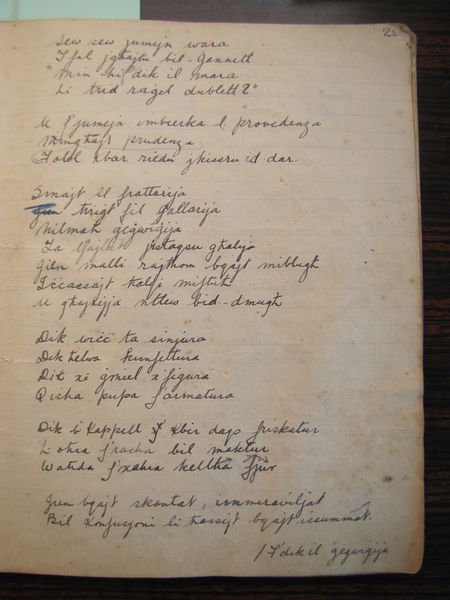 22
Sew sew jumejn wara
Iful jghajtu bil-Gannett
"Min hi dik il mara
Li trid ragel dublett?"
U f'jumejn imbierka l providenza
Minghajr prudenza
Folol kbar riedu jkissru id-dar.
Smajt il frattarija
Jien hrigt fil gallarija
Nilmah gegwigija
Ta tfajliet jistagsu ghalija
Jien malli rajthom bqajt miblugh
Iccassajt halqi miftuh
U ghajnejja mtlew bid-dmugh
Dik wicc ta sinjura
Dik helwa kunfettura
Dik xi gmiel x'figura
Qisha pupa f'ormatura
Dik b'kappell f kbir daqs friskatur
L ohra f'racha bil maktur
Wahda f'xahra kellha fjur
Jien bqajt skantat, immeraviljat
Bil konfusjoni li hassejt bqajt issummat.
/ F'dik il gegwigija